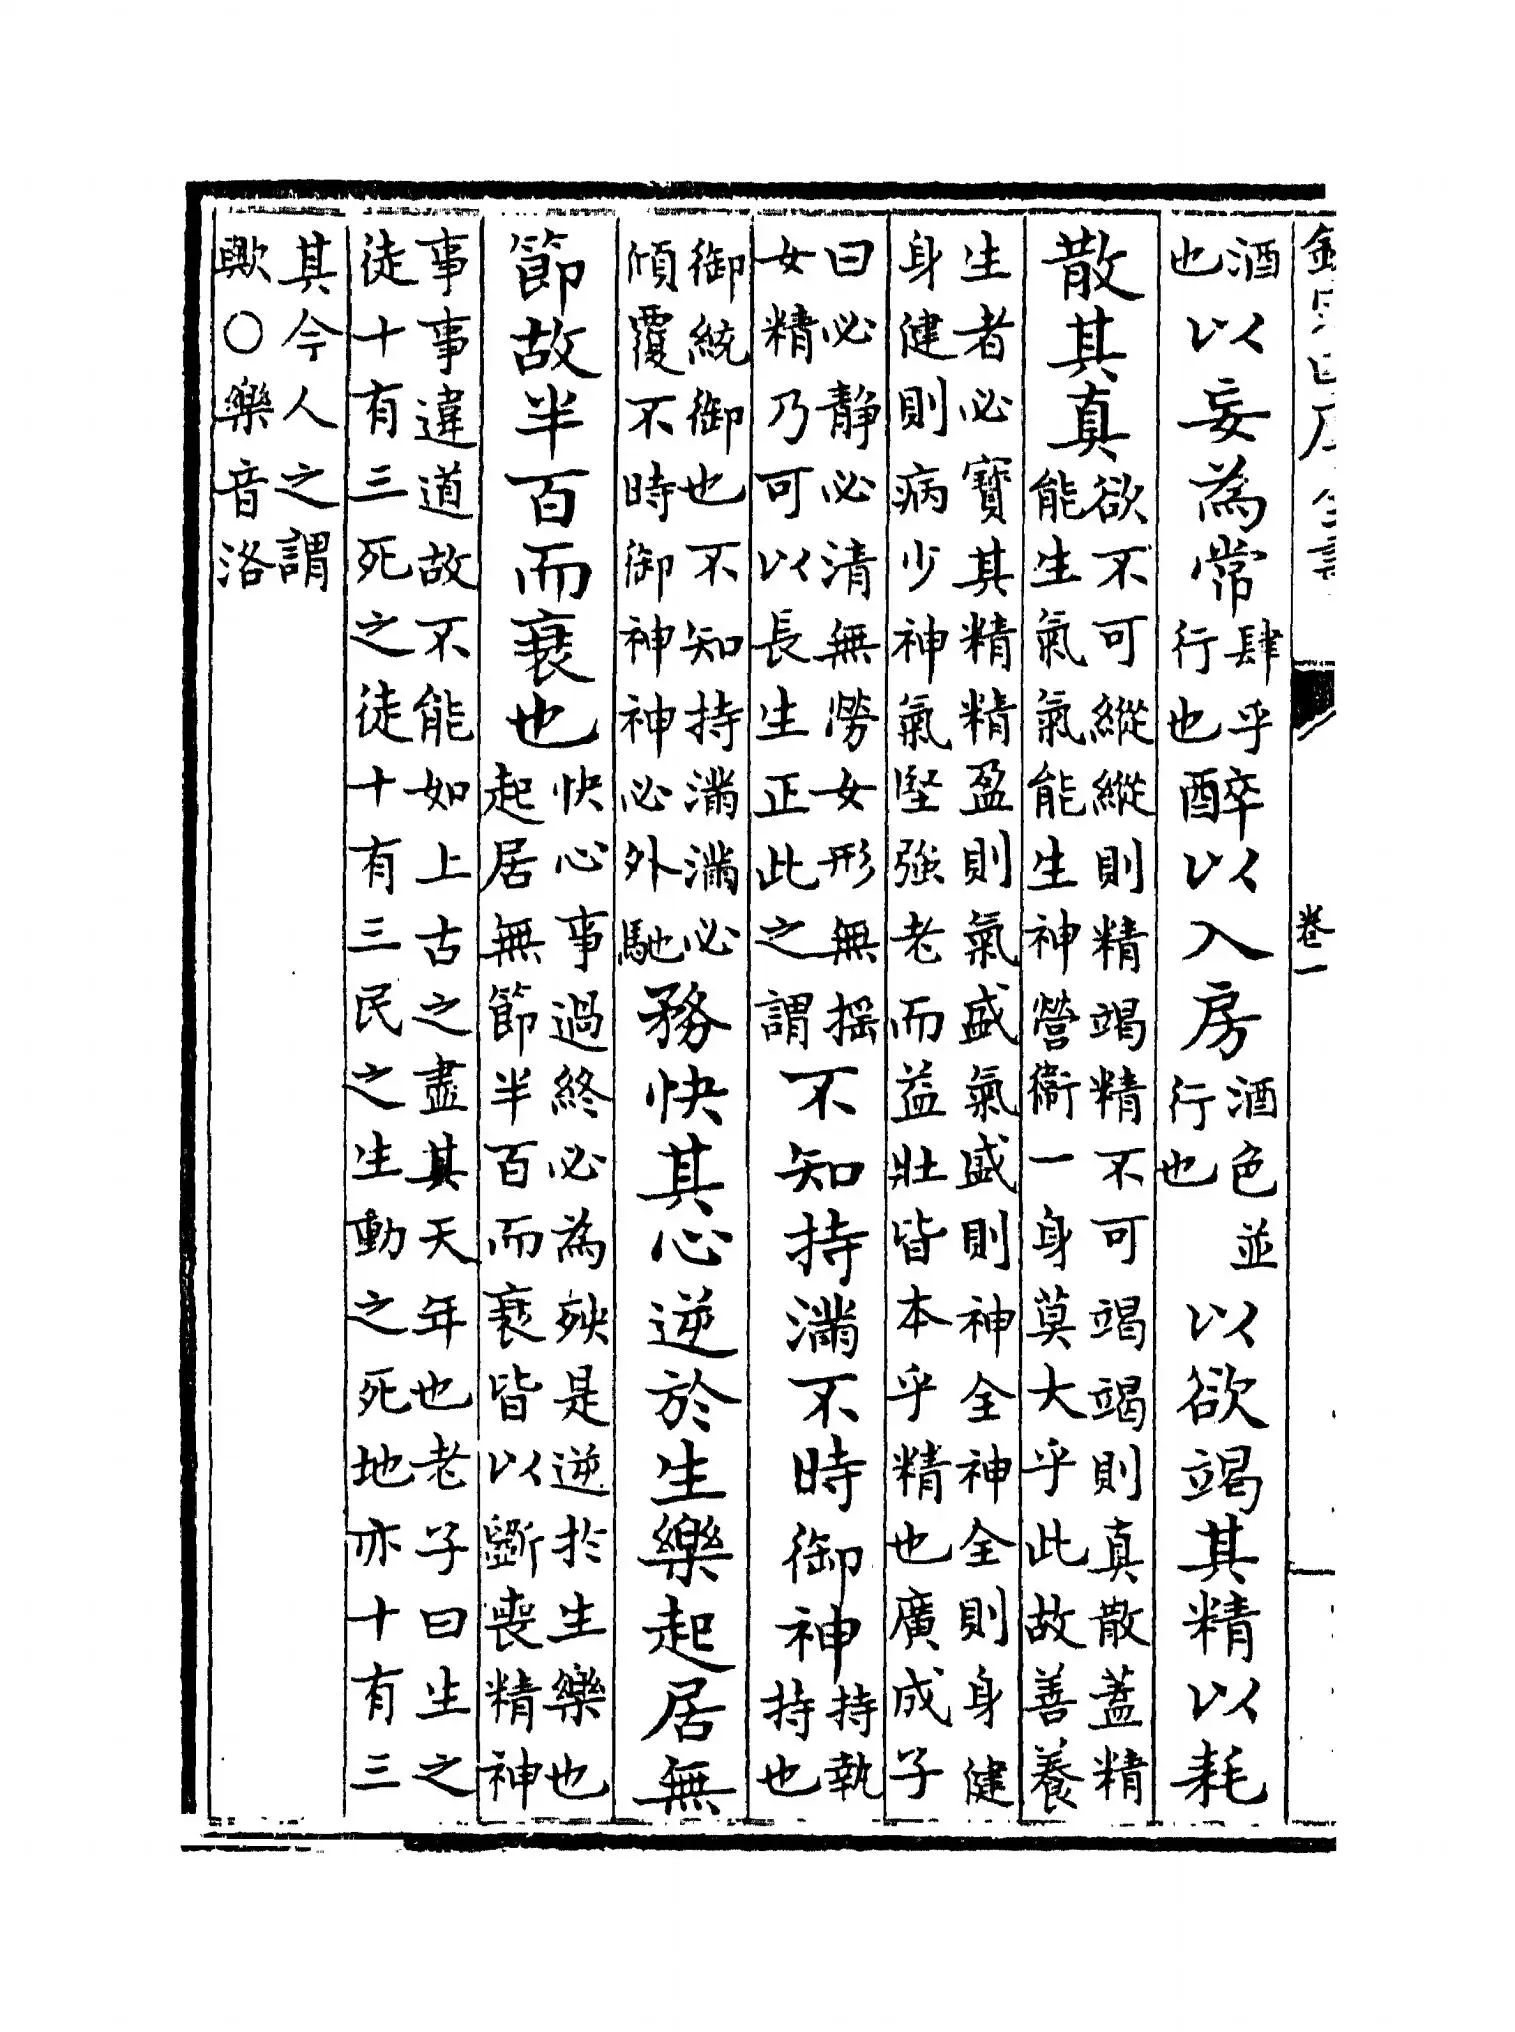 欽定四庫全書 卷一
酒也以妄為常肆乎行也醉以入房酒色並行也以欲竭其精以耗
散其真欲不可縱縱則精竭精不可竭竭則真散蓋精能生氣氣能生神營衞一身莫大乎此故善養
生者必寶其精精盈則氣盛氣盛則神全神全則身健身健則病少神氣堅強老而益壯皆本乎精也廣成子
曰必静必清無勞女形無揺女精乃可以長生正此之謂不知持滿不時御神持執持也
御統御也不知持滿滿必傾覆不時御神神必外馳務快其心逆於生樂起居無
節故半百而衰也快心事過終必為殃是逆於生樂也起居無節半百而衰皆以斵喪精神
事事違道故不能如上古之盡其天年也老子曰生之徒十有三死之徒十有三民之生動之死地亦十有三
其今人之謂歟○樂音洛